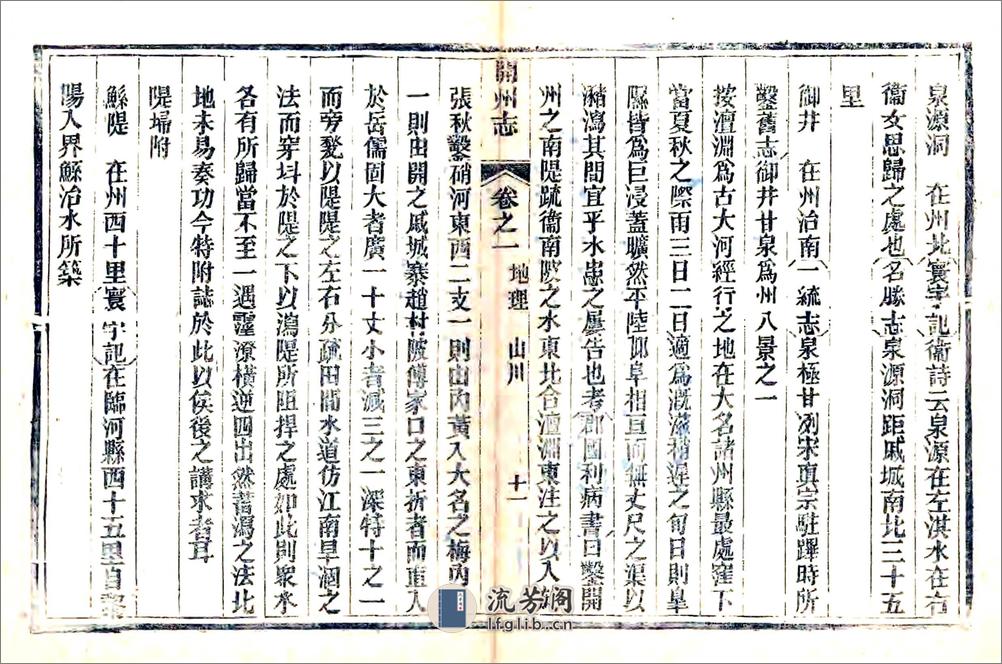 泉源洞　在州北寰宇記衛詩云泉源在左淇水在右
衞女思歸之處也名勝志泉源洞距戚城南北三十五
里
御井　在州治南一統志泉極甘冽宋真宗駐蹕時所
鑿舊志御井甘泉爲州八景之一
按澶淵爲古大河經行之地在大名諸州縣最處窪下
當夏秋之際雨三日二日適爲漑灌稍遲之旬日則皐
隰皆爲巨浸蓋曠然平陸卽阜相亘而無丈尺之渠以
瀦瀉其間宜乎水患之屢告也考郡國利病書曰鑿開
州之南隄疏衞南陂之水東北合澶淵東注之以入
開州志　卷之一　地理　山川　十一
張秋鑿硝河東西二支一則由內黃入大名之梅內
一則由開之戚城寨趙村陂傅家口之東折者而直入
於岳儒固大者廣一十丈小者減三之一深特十之二
而旁甃以隄隄之左右分疏田間水道仿江南旱涸之
法而穿㘰於隄之下以瀉隄所阻捍之處如此則衆水
各有所歸當不至一遇霪潦橫逆四出然蓄瀉之法北
地未易奏功今特附誌於此以俟後之講求者耳
隄埽附
鯀隄　在州西十里寰宇記在臨河縣西十五里自黎
陽入界鯀治水所築
流芳閣
lfglib.cn